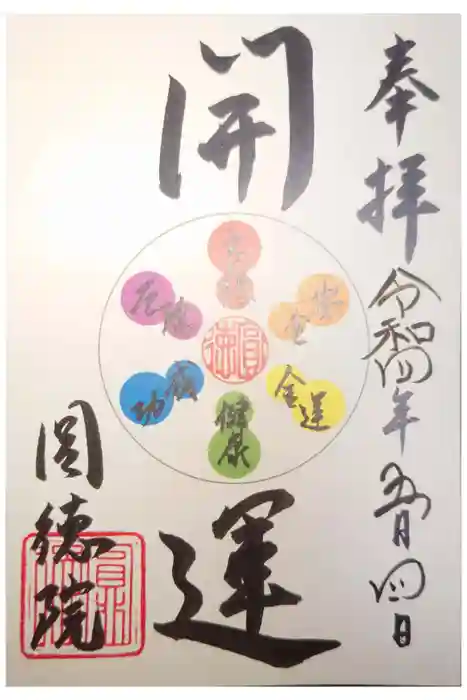 奉拝
令和四年五月四日
開運
金運
健康
成功
圓徳
圓徳院